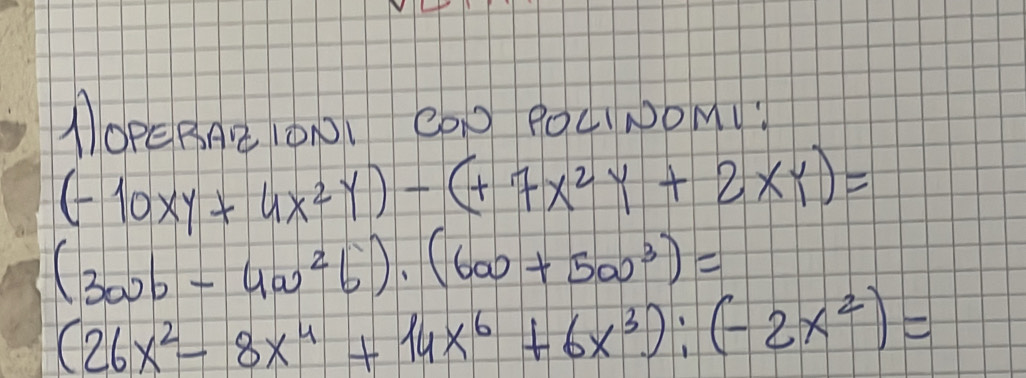 1) OPERAZIONI CON POLINOMI:
(-10xy + 4x²y) - (+7x²y + 2xy) =
(3ab - 4a²b) · (6a + 5a³) =
(26x² - 8x⁴ + 14x⁶ + 6x³) : (-2x²) =